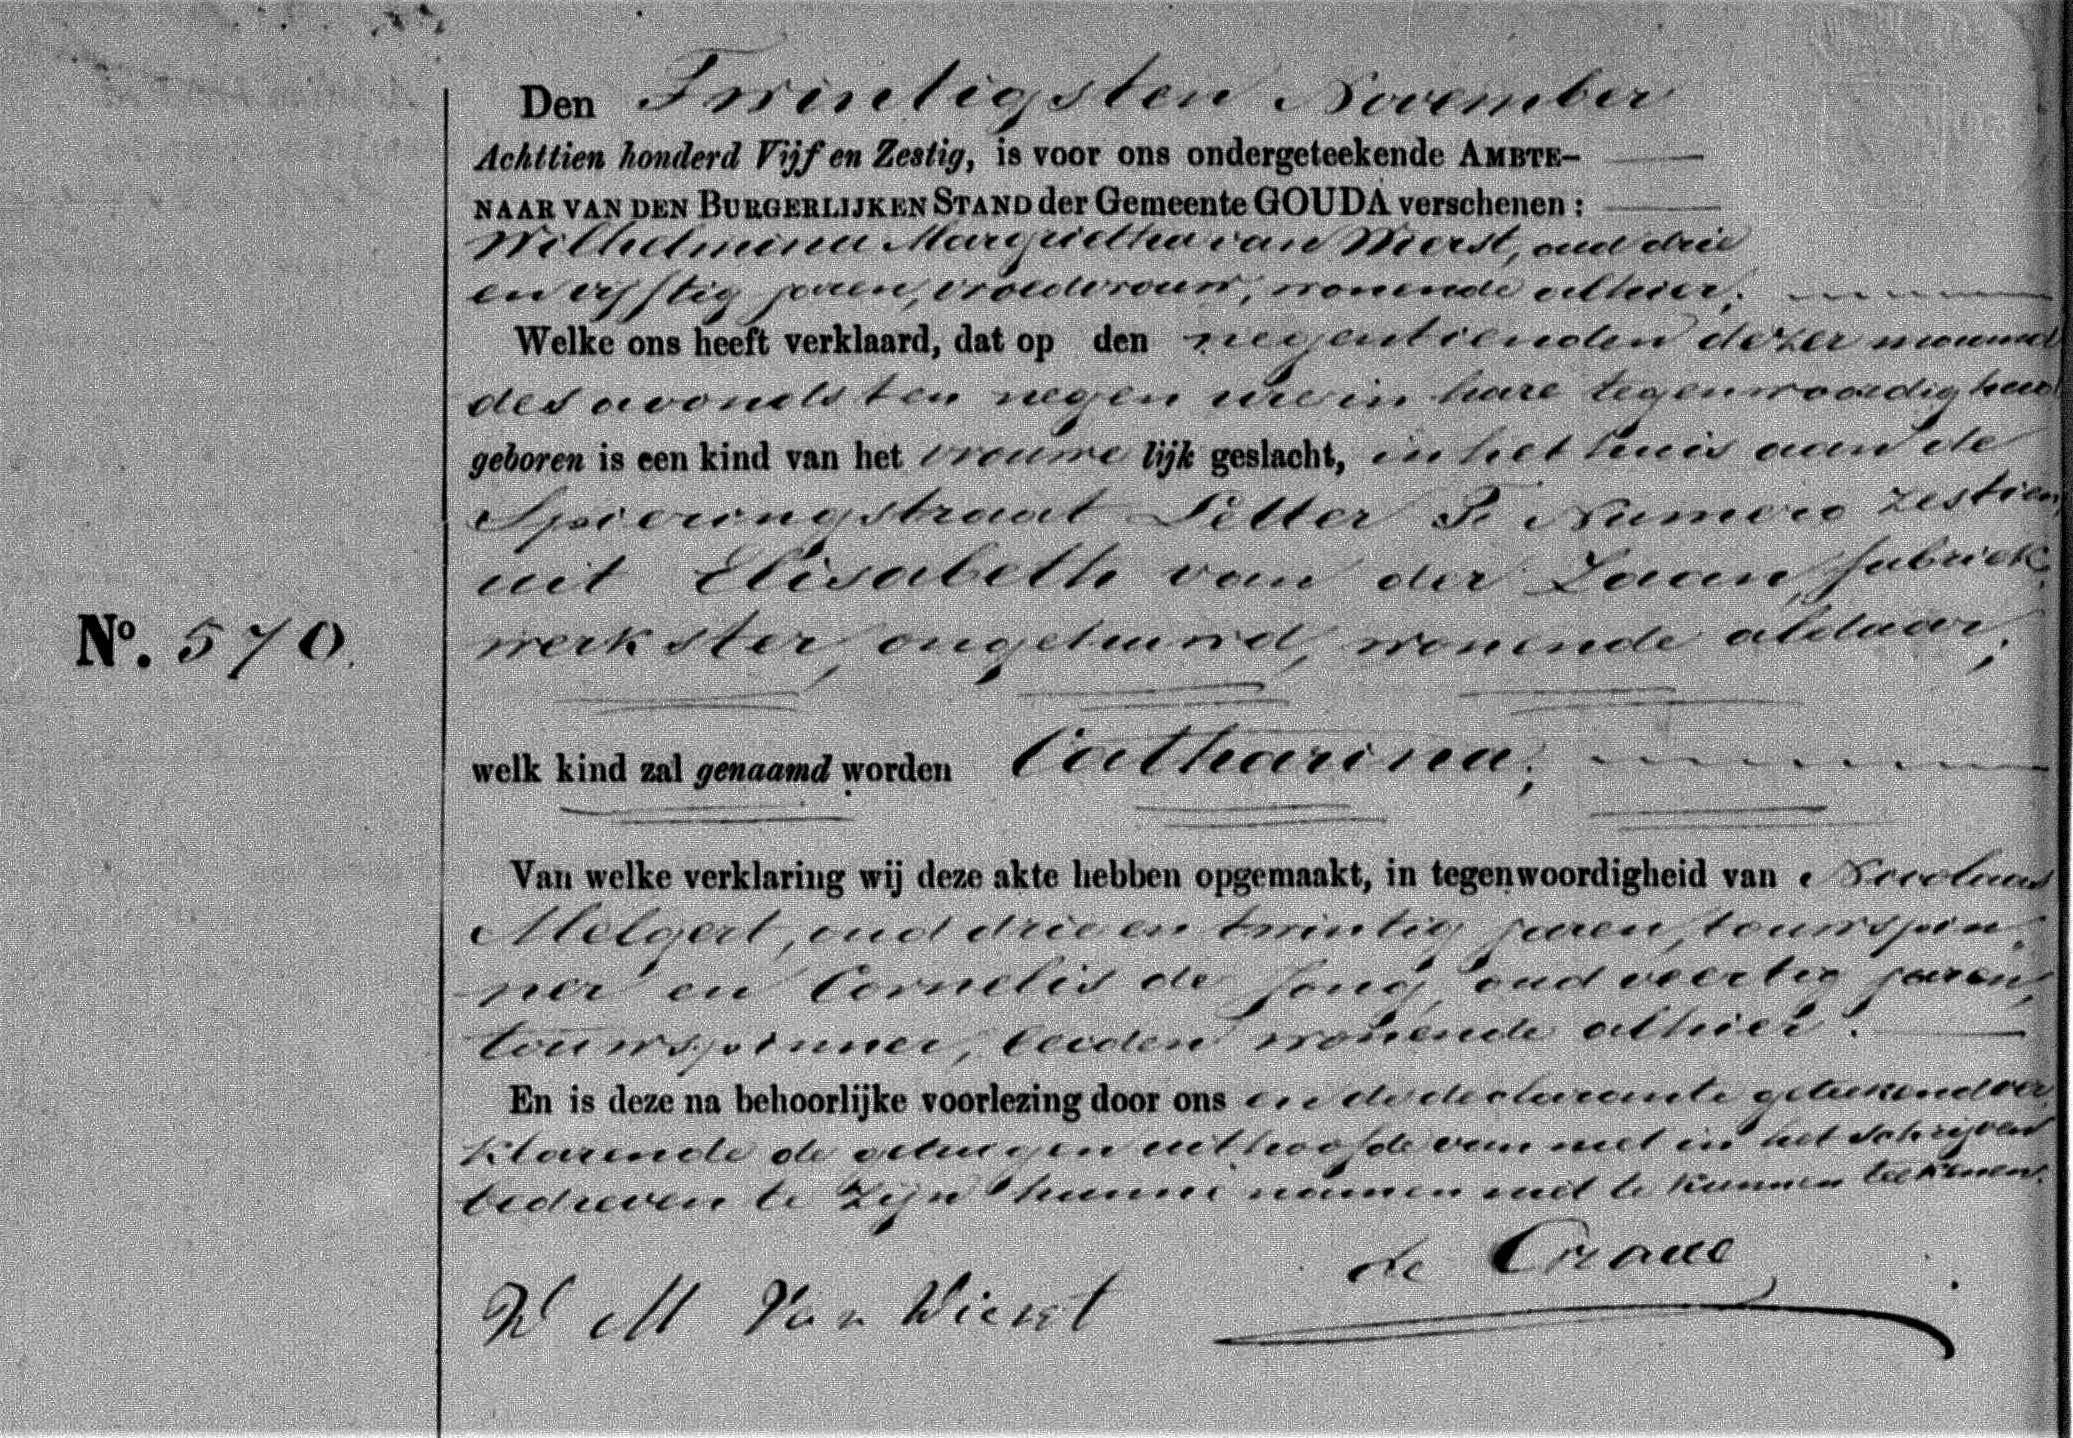 Den Twintigsten November
Achttien honderd Vijf en Zestig, is voor ons ondergeteekende AMBTE-
NAAR VAN DEN BURGERLIJKEN STAND der Gemeente GOUDA verschenen:
Wilhelmina Margrietha van Wierst, oud drie
en vijftig jaren, vroedvrouw, wonende alhier;
Welke ons heeft verklaard, dat op den negentienden dezer maand
des avonds ten negen ure in hare tegenwoordigheid
geboren is een kind van het vrouwe lijk geslacht, in het huis aan de
Spieringstraat Letter F. Numero zestien,
uit Elisabeth van der Laan, fabriek-
werkster, ongehuwd, wonende aldaar;
No. 570.
welk kind zal genaamd worden Catharina;
Van welke verklaring wij deze akte hebben opgemaakt, in tegenwoordigheid van Nicolaas
Melgert, oud drie en twintig jaren, touwspin-
ner en Cornelis de Jong, oud veertig jaren,
touwspinner, beiden wonende alhier.
En is deze na behoorlijke voorlezing door ons en de declarante geteekend ver-
klarende de getuigen uithoofde van niet in het schrijven
bedreven te zijn hunne namen niet te kunnen teekenen.
de
W M Van Wierst